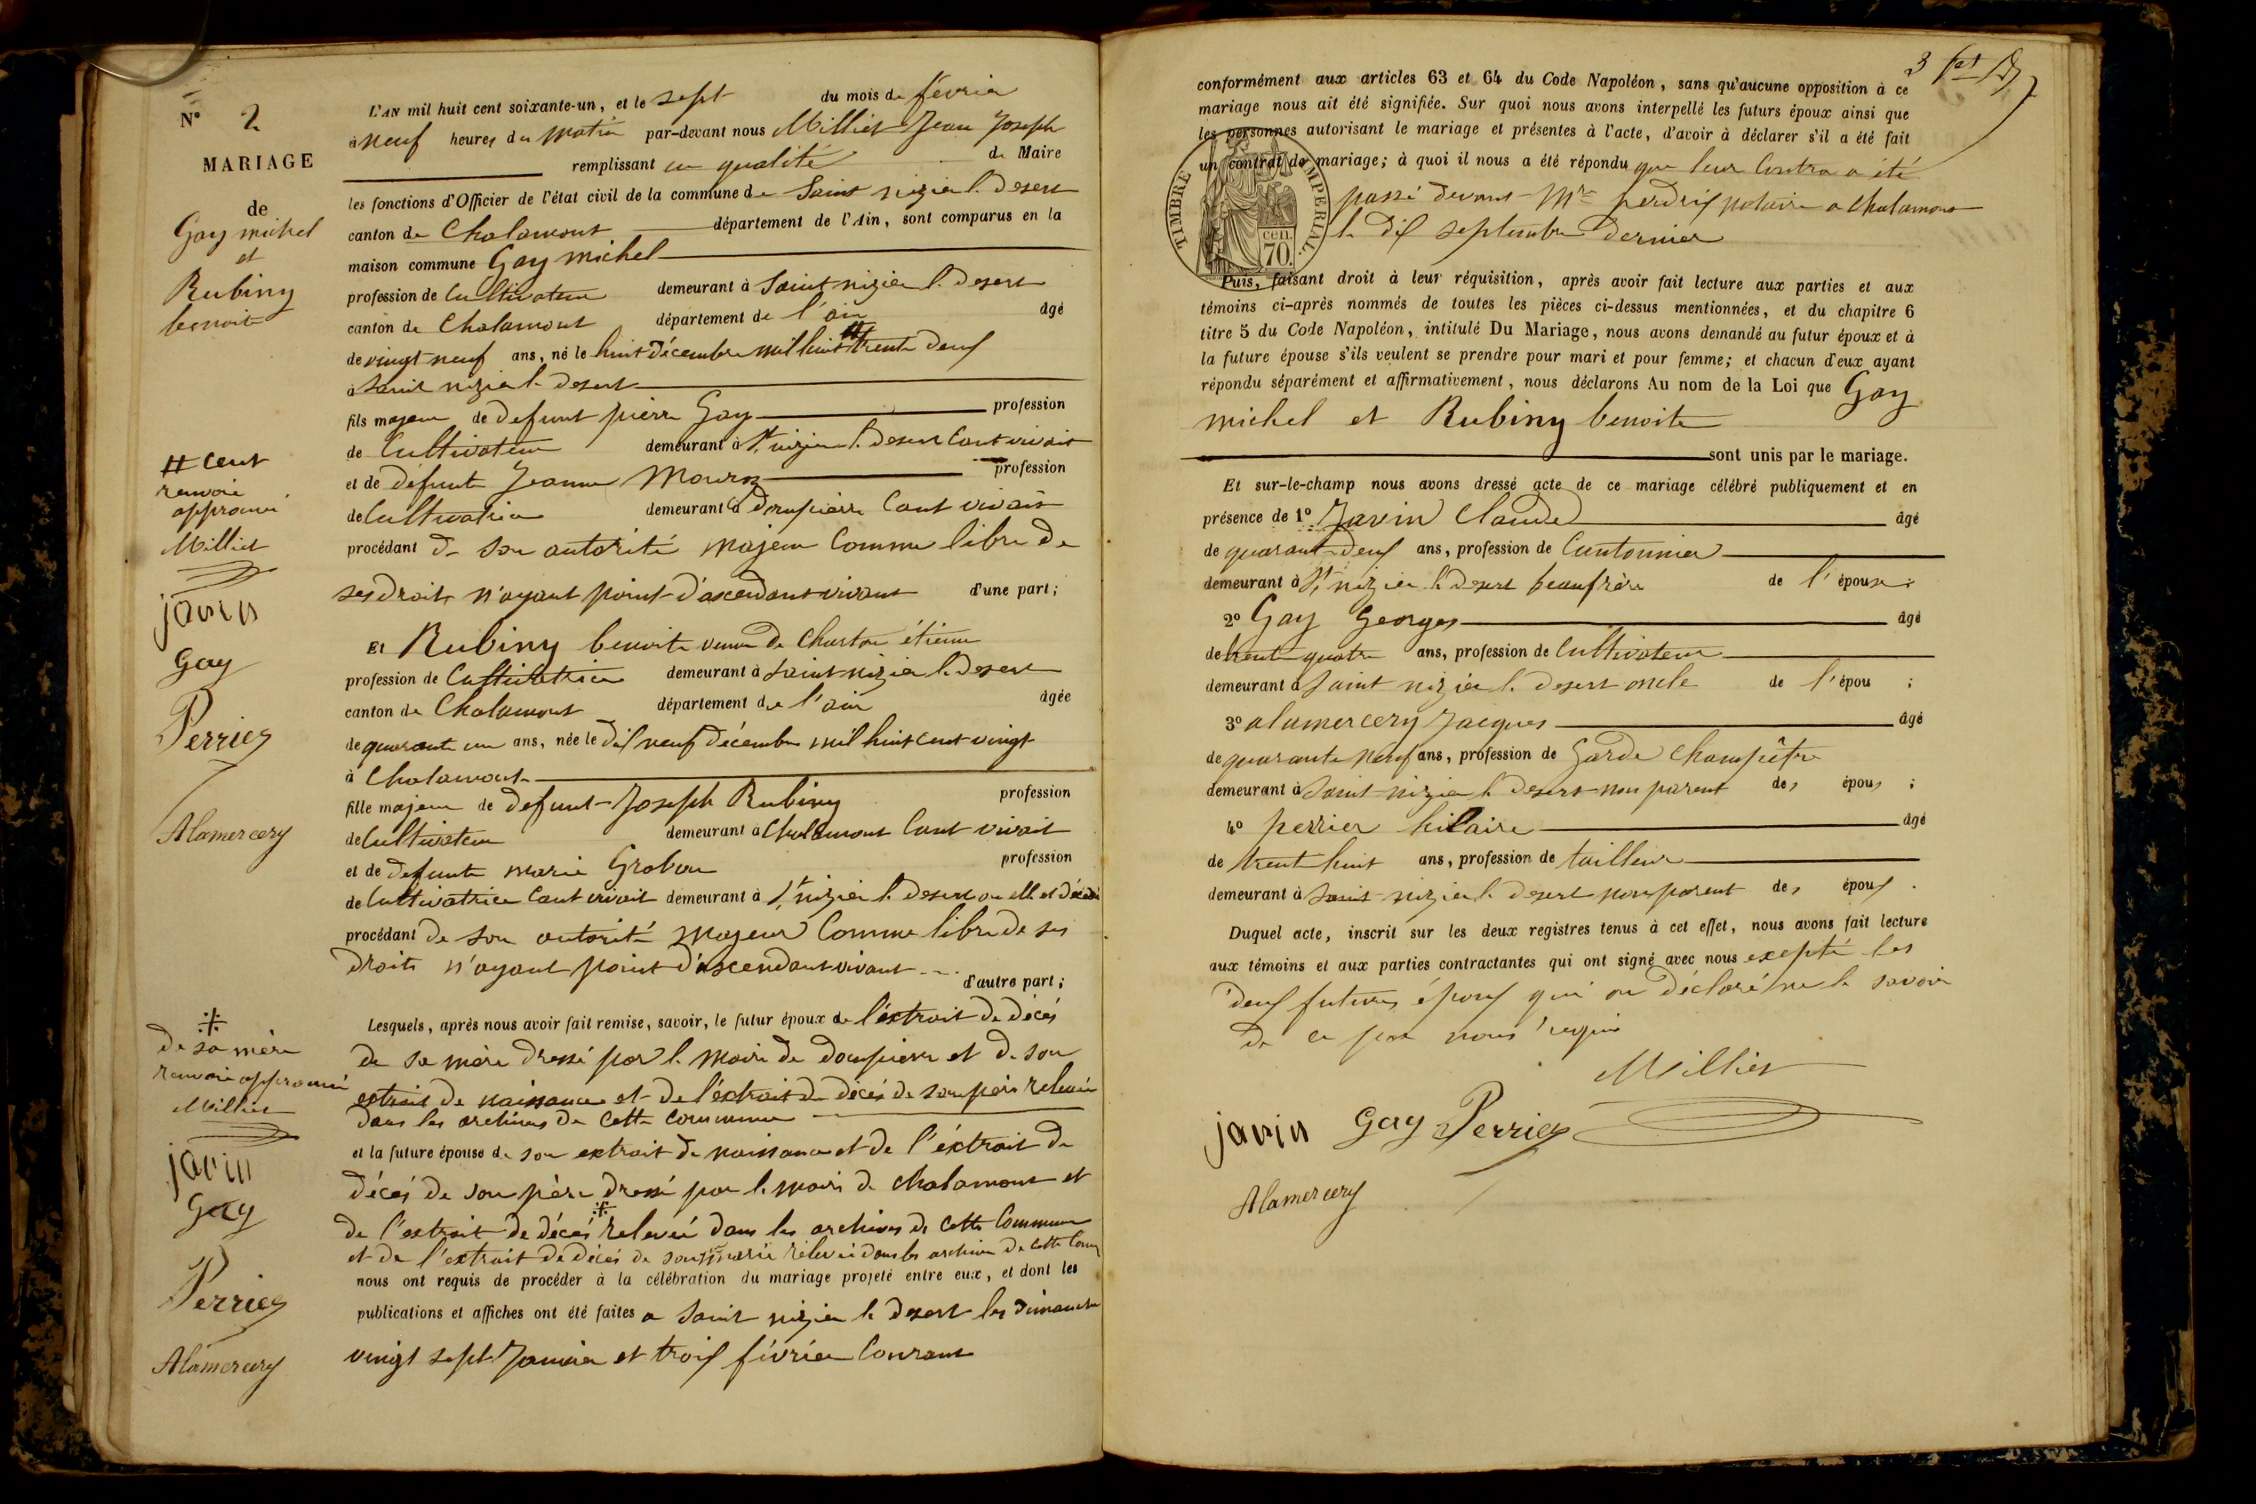 N° 2
MARIAGE
de
Gay michel
et
Rubiny
benoite
L'AN mil huit cent soixante-un, et le sept du mois de février
à neuf heures du matin par-devant nous Milliet Jean Joseph
remplissant en qualité de Maire
les fonctions d'Officier de l'état civil de la commune de Saint nizier le Desert
canton de Chalamont département de l'Ain, sont comparus en la
maison commune Gay michel
profession de Cultivateur demeurant à Saint nizier le Desert
canton de Chalamont département de l'ain âgé
de vingt neuf ans, né le huit Décembre mil huit # trente deux
à Saint nizier le desert
fils majeur de defunt pierre Gay profession
de Cultivateur demeurant à St nizier le Desert Cant vivait
et de défunte Jeanne profession
de Cultivatrice demeurant à Dompierre Cant vivait
procédant de son autorité majeur Comme libre De
ses droits n'ayant point d'ascendant vivant d'une part;
# cent
renvoie
approuvé
Milliet
javin
Gay
Perrier
Alamercery
Et Rubiny benoite veuve de Charton étienne
profession de Cultivatrice demeurant à Saint nizier le Desert
canton de Chalamont département de l'ain âgée
de quarante un ans, née le Dix neuf décembre mil huit cent vingt
à Chalamont
fille majeure de defunt Joseph Rubiny profession
de Cultivateur demeurant à Chalamont Cant vivait
et de defunte marie Grobon profession
de Cultivatrice Cant vivait demeurant à St nizier le Desert ou elle est décédé
procédant de son autorité majeur Comme libre de ses
droits n'ayant point d'ascendant vivant d'autre part;
Lesquels, après nous avoir fait remise, savoir, le futur époux de l'extrait De décés
de sa mère Dressé par le maire de dompierre et de son
extrait de naissance et de l'éxtrait de décés de son père relevée
dans les archives de cette commune
et la future épouse de son extrait de naissance et de l'éxtrait de
décés de son père dressé par le maire de chalamont et
de l'extrait de décés ⁜ relevée dans les archives de cette Commune
et de l'extrait de décés de son marie relevée dans les archives de cette Comm
nous ont requis de procéder à la célébration du mariage projeté entre eux, et dont les
publications et affiches ont été faites a Saint nizier le desert les dimanche
vingt sept Janvier et trois février Courant
⁜
de sa mère
renvoie approuvé
Milliet
javin
Gay
Perrier
Alamercery
3
conformément aux articles 63 et 64 du Code Napoléon, sans qu'aucune opposition à ce
mariage nous ait été signifiée. Sur quoi nous avons interpellé les futurs époux ainsi que
les personnes autorisant le mariage et présentes à l'acte, d'avoir à déclarer s'il a été fait
un contrat de mariage; à quoi il nous a été répondu que leur Contra a été
passé devant Mre perdrix notaire a chalamont
le dix septembre dernier
TIMBRE IMPERIAL
cen.
70.
Puis, faisant droit à leur réquisition, après avoir fait lecture aux parties et aux
témoins ci-après nommés de toutes les pièces ci-dessus mentionnées, et du chapitre 6
titre 5 du Code Napoléon, intitulé Du Mariage, nous avons demandé au futur époux et à
la future épouse s'ils veulent se prendre pour mari et pour femme; et chacun d'eux ayant
répondu séparément et affirmativement, nous déclarons Au nom de la Loi que Gay
michel et Rubiny benoite
sont unis par le mariage.
Et sur-le-champ nous avons dressé acte de ce mariage célébré publiquement et en
présence de 1° Javin Claude âgé
de quarant deux ans, profession de Cantonnier
demeurant à St nizier le Desert beaufrère de l'épouse;
2° Gay Georges âgé
de trente quatre ans, profession de Cultivateur
demeurant à Saint nizier le desert oncle de l'épou ;
3° alamercery Jacques âgé
de quarante neuf ans, profession de Garde Champêtre
demeurant à Saint nizier le Desert non parent des épous ;
4° perrier hilaire âgé
de trent huit ans, profession de tailleur
demeurant à Saint nizier le desert non parent des époux .
Duquel acte, inscrit sur les deux registres tenus à cet effet, nous avons fait lecture
aux témoins et aux parties contractantes qui ont signé avec nous exepté les
deux futures époux qui on déclaré ne le savoir
de ce par nous requis
Milliet
javin Gay Perrier
Alamercery